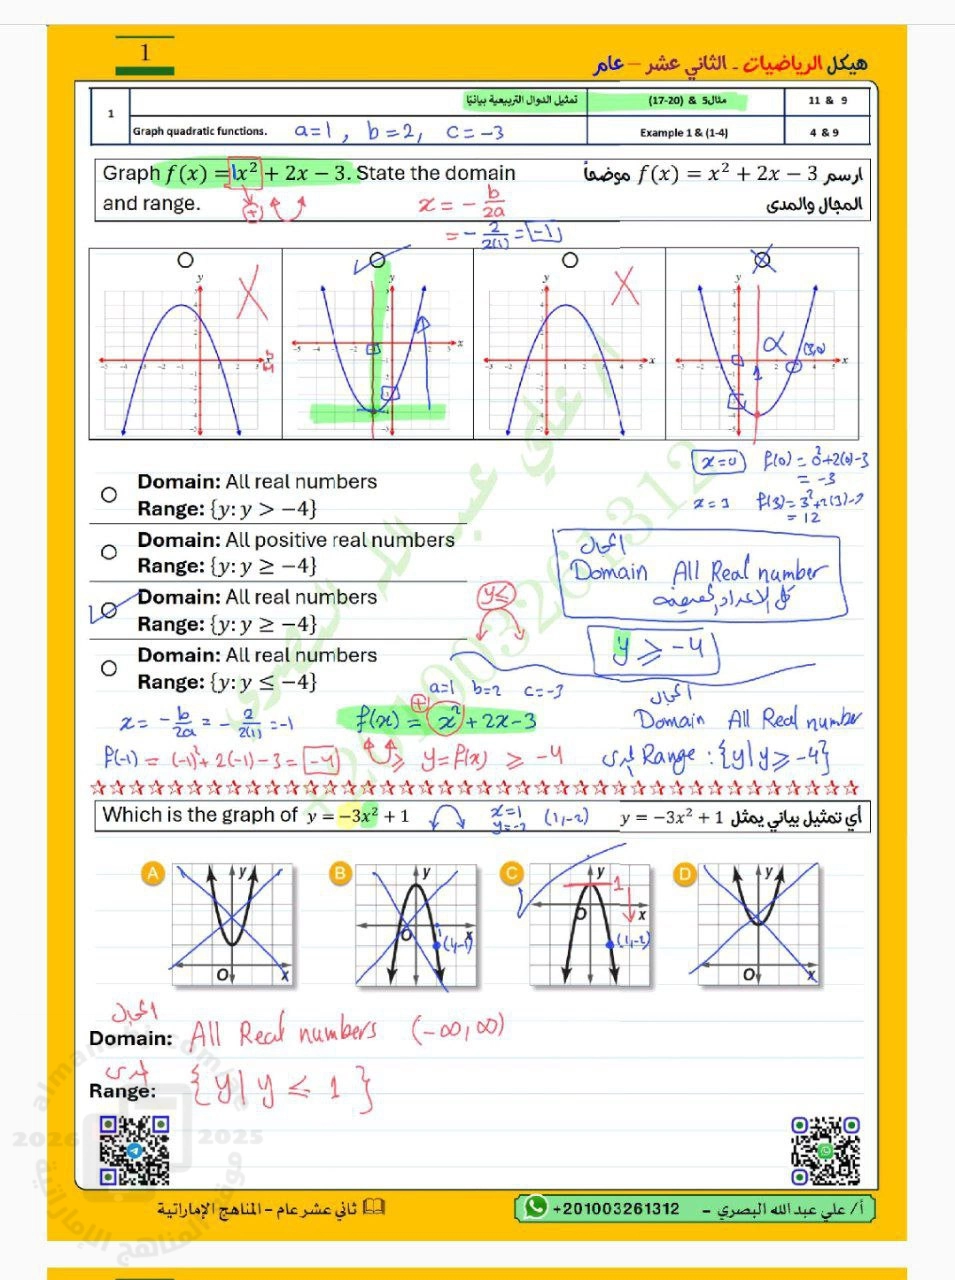 1
هيكل الرياضيات - الثاني عشر - عام
1
تمثيل الدوال التربيعية بيانيًا
مثال5 & (17-20)
11 & 9
Graph quadratic functions.
a=1 , b=2, c=-3
Example 1 & (1-4)
4 & 9
Graph f(x) = 1x² + 2x − 3. State the domain
and range.
ارسم f(x) = x² + 2x − 3 موضحاً
المجال والمدى
x = - b/2a
= - 2/2(1) = -1
Domain: All real numbers
Range: {y: y > −4}
Domain: All positive real numbers
Range: {y: y ≥ −4}
Domain: All real numbers
Range: {y: y ≥ −4}
Domain: All real numbers
Range: {y: y ≤ −4}
x=0 f(0) = 0²+2(0)-3
= -3
x=3 f(3)=3²+2(3)-3
= 12
المجال
Domain All Real number
كل الاعداد الحقيقية
y≤
y ≥ -4
a=1 b=2 c=-3
x = - b/2a = - 2/2(1) = -1
f(x) = x² + 2x - 3
f(-1) = (-1)²+2(-1)-3 = -4
≥ y = f(x) ≥ -4
المجال
Domain All Real number
المدى Range : {y| y ≥ -4}
Which is the graph of y = −3x² + 1
x=1
y=-2
(1,-2)
أي تمثيل بياني يمثل y = −3x² + 1
A
B
C
D
y
x
O
1
(1,-2)
المجال
Domain: All Real numbers (-∞,∞)
المدى
Range: {y| y ≤ 1 }
2026
2025
موقع المناهج الإماراتية
ثاني عشر عام - المناهج الإماراتية
+201003261312
أ/ علي عبد الله البصري -
أ/ علي عبد الله البصري
+201003261312